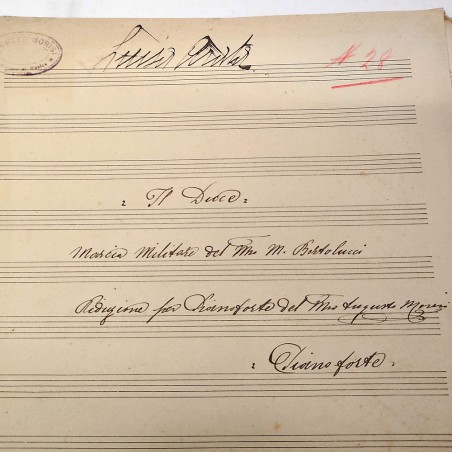 Nº 28
= Il Duce =
Marcia Militare del Mº M. Bertolucci
Riduzione per Pianoforte del Mº Augusto
= Pianoforte =